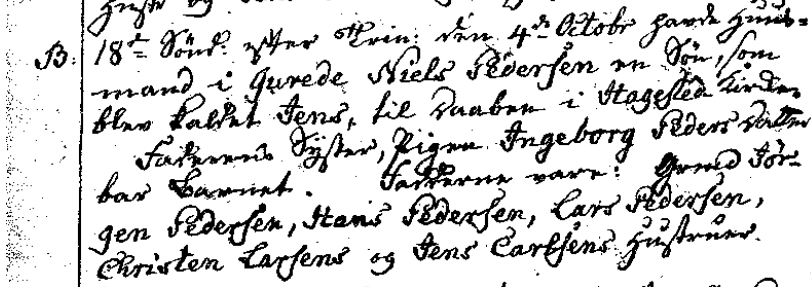 Hustr og
B. 18de Sønd. efter Trin: den 4de Octobr havde Huus=
mand i Gurede Niels Pedersen en Søn, som
blev kaldet Jens, til Daaben i Hagested Kirke.
Faderens Syster, Pigen Ingeborg Peders Datter
bar Barnet. Fadderne vare: Grmd Jør=
gen Pedersen, Hans Pedersen, Lars Pedersen,
Christen Larsens og Jens Carlsens Hustruer.